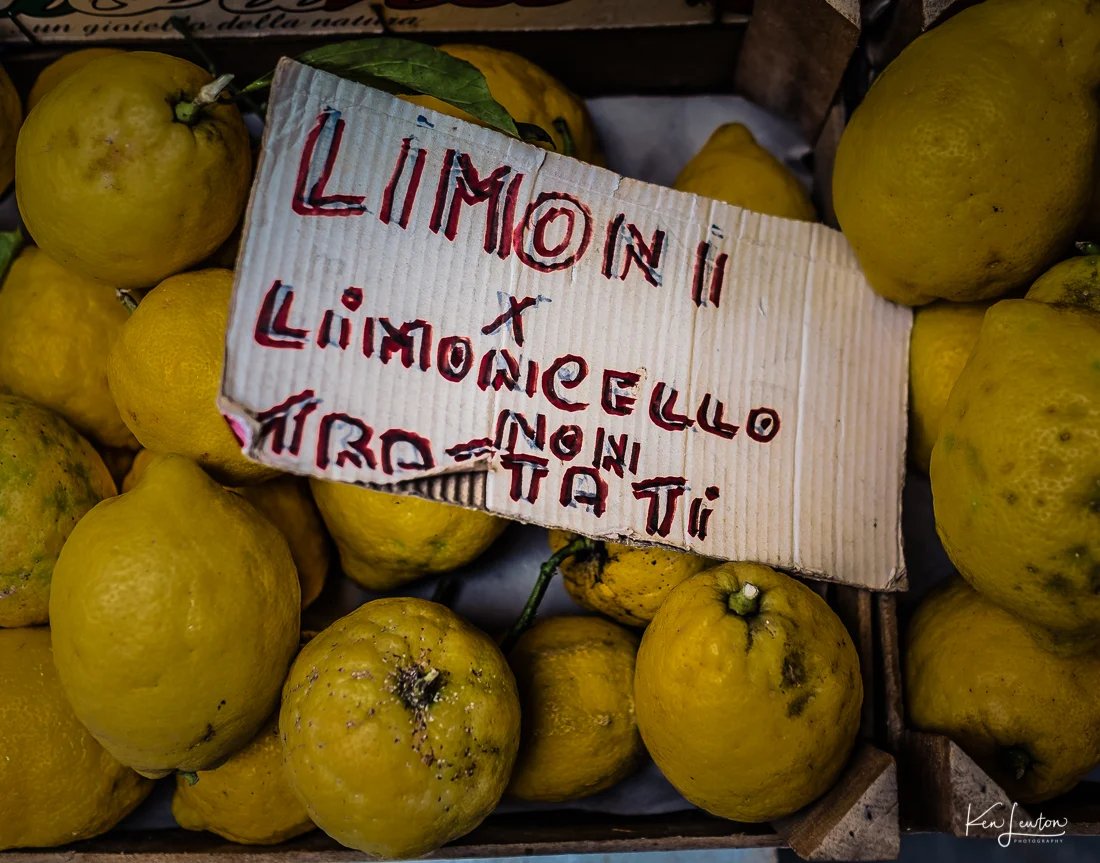 un gioiello della natura
LIMONI
X
LIMONCELLO
NON
TRA-TTATI
Ken Lewton
PHOTOGRAPHY